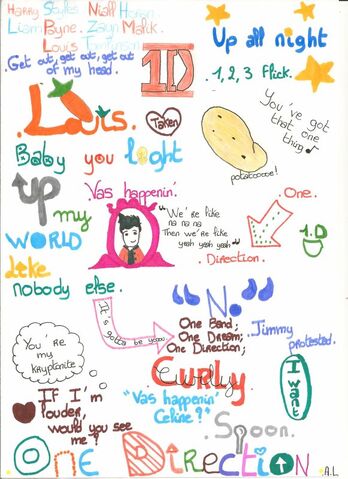 Harry Styles Niall Horan
Liam Payne. Zayn Malik.
Louis Tomlinson
Up all night
.Get out, get out, get out
of my head.
1D
.1,2,3 flick.
Louis.
Taken
You've got
that one
thing
potatoooooe!
Baby you light
up my
WORLD
like
nobody else.
Vas happenin'.
"We're like
na na na
Then we're like
yeah yeah yeah"
One.
.Direction.
1.D
"N."
It's gotta be youuu
One Band;
One Dream;
One Direction;
.Jimmy
protested.
You're
my
kryptonite
Curly
I want
If I'm
louder,
would you see
me?
"Vas happenin'
Celine?"
.Spoon.
ONE DIRECTION
A.L